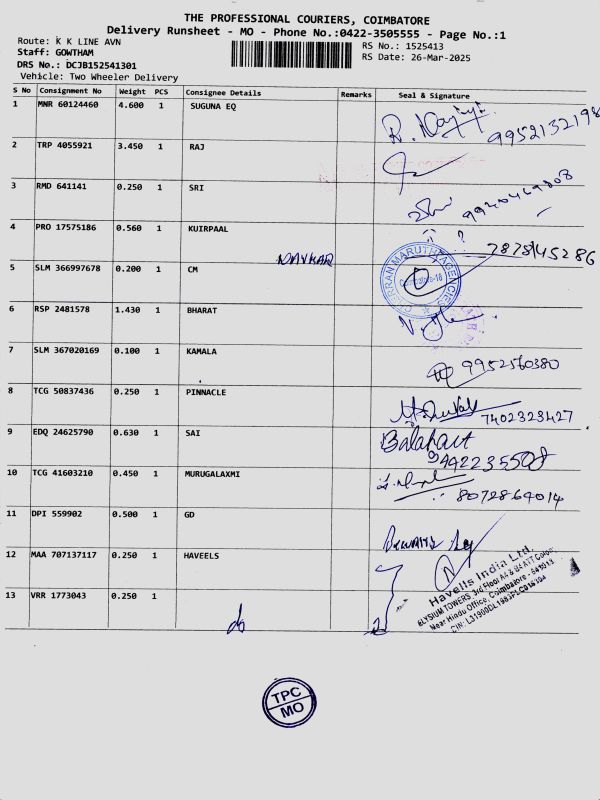 THE PROFESSIONAL COURIERS, COIMBATORE
Delivery Runsheet - MO - Phone No.:0422-3505555 - Page No.:1
Route: K K LINE AVN
RS No.: 1525413
Staff: GOWTHAM
RS Date: 26-Mar-2025
DRS No.: DCJB152541301
Vehicle: Two Wheeler Delivery
S No Consignment No Weight PCS Consignee Details Remarks Seal & Signature
1 MNR 60124460 4.600 1 SUGUNA EQ
9952132198
2 TRP 4055921 3.450 1 RAJ
3 RMD 641141 0.250 1 SRI
4 PRO 17575186 0.560 1 KUIRPAAL
NAVKAR
5 SLM 366997678 0.200 1 CM
6 RSP 2481578 1.430 1 BHARAT
7 SLM 367020169 0.100 1 KAMALA
9952560380
8 TCG 50837436 0.250 1 PINNACLE
7402323427
9 EDQ 24625790 0.630 1 SAI
9442235508
10 TCG 41603210 0.450 1 MURUGALAXMI
8072864014
11 DPI 559902 0.500 1 GD
12 MAA 707137117 0.250 1 HAVEELS
Havells India Ltd.
ELYSIUM TOWERS, 3rd Floor
Near Hindu Office, Coimbatore - 641013
13 VRR 1773043 0.250 1
TPC
MO